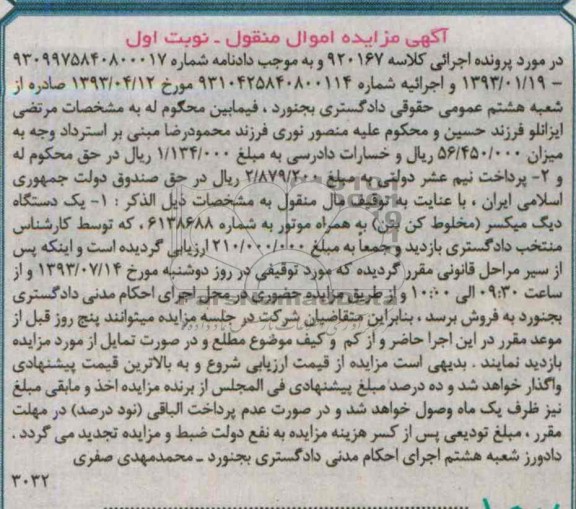 آگهی مزایده اموال منقول ـ نوبت اول
در مورد پرونده اجرائی کلاسه ۹۲۰۱۶۷ و به موجب دادنامه شماره ۹۳۰۹۹۷۵۸۴۰۸۰۰۰۱۷
– ۱۳۹۳/۰۱/۱۹ و اجرائیه شماره ۹۳۱۰۴۲۵۸۴۰۸۰۰۱۱۴ مورخ ۱۳۹۳/۰۴/۱۲ صادره از
شعبه هشتم عمومی حقوقی دادگستری بجنورد ، فیمابین محکوم له به مشخصات مرتضی
ایزانلو فرزند حسین و محکوم علیه منصور نوری فرزند محمودرضا مبنی بر استرداد وجه به
میزان ۵۶/۴۵۰/۰۰۰ ریال و خسارات دادرسی به مبلغ ۱/۱۳۴/۰۰۰ ریال در حق محکوم له
و ۲- پرداخت نیم عشر دولتی به مبلغ ۲/۸۷۹/۲۰۰ ریال در حق صندوق دولت جمهوری
اسلامی ایران ، با عنایت به توقیف مال منقول به مشخصات ذیل الذکر : ۱- یک دستگاه
دیگ میکسر (مخلوط کن بتن) به همراه موتور به شماره ۶۱۳۸۶۸۸ ، که توسط کارشناس
منتخب دادگستری بازدید و جمعاً به مبلغ ۲۱۰/۰۰۰/۰۰۰ ارزیابی گردیده است و اینکه پس
از سیر مراحل قانونی مقرر گردیده که مورد توقیفی در روز دوشنبه مورخ ۱۳۹۳/۰۷/۱۴ و از
ساعت ۰۹:۳۰ الی ۱۰:۰۰ و از طریق مزایده حضوری در محل اجرای احکام مدنی دادگستری
بجنورد به فروش برسد ، بنابراین متقاضیان شرکت در جلسه مزایده میتوانند پنج روز قبل از
موعد مقرر در این اجرا حاضر و از کم و کیف موضوع مطلع و در صورت تمایل از مورد مزایده
بازدید نمایند . بدیهی است مزایده از قیمت ارزیابی شروع و به بالاترین قیمت پیشنهادی
واگذار خواهد شد و ده درصد مبلغ پیشنهادی فی المجلس از برنده مزایده اخذ و مابقی مبلغ
نیز ظرف یک ماه وصول خواهد شد و در صورت عدم پرداخت الباقی (نود درصد) در مهلت
مقرر ، مبلغ تودیعی پس از کسر هزینه مزایده به نفع دولت ضبط و مزایده تجدید می گردد .
دادورز شعبه هشتم اجرای احکام مدنی دادگستری بجنورد ـ محمدمهدی صفری
۳۰۳۲